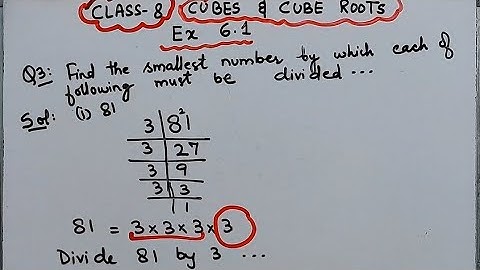 CLASS-8 CUBES & CUBE ROOTS
Ex 6.1
Q3: Find the smallest number by which each of
following must be divided ...
Sol: (i) 81
3 | 8²1
3 | 27
3 | 9
3 | 3
1
81 = 3×3×3×3
Divide 81 by 3 ...